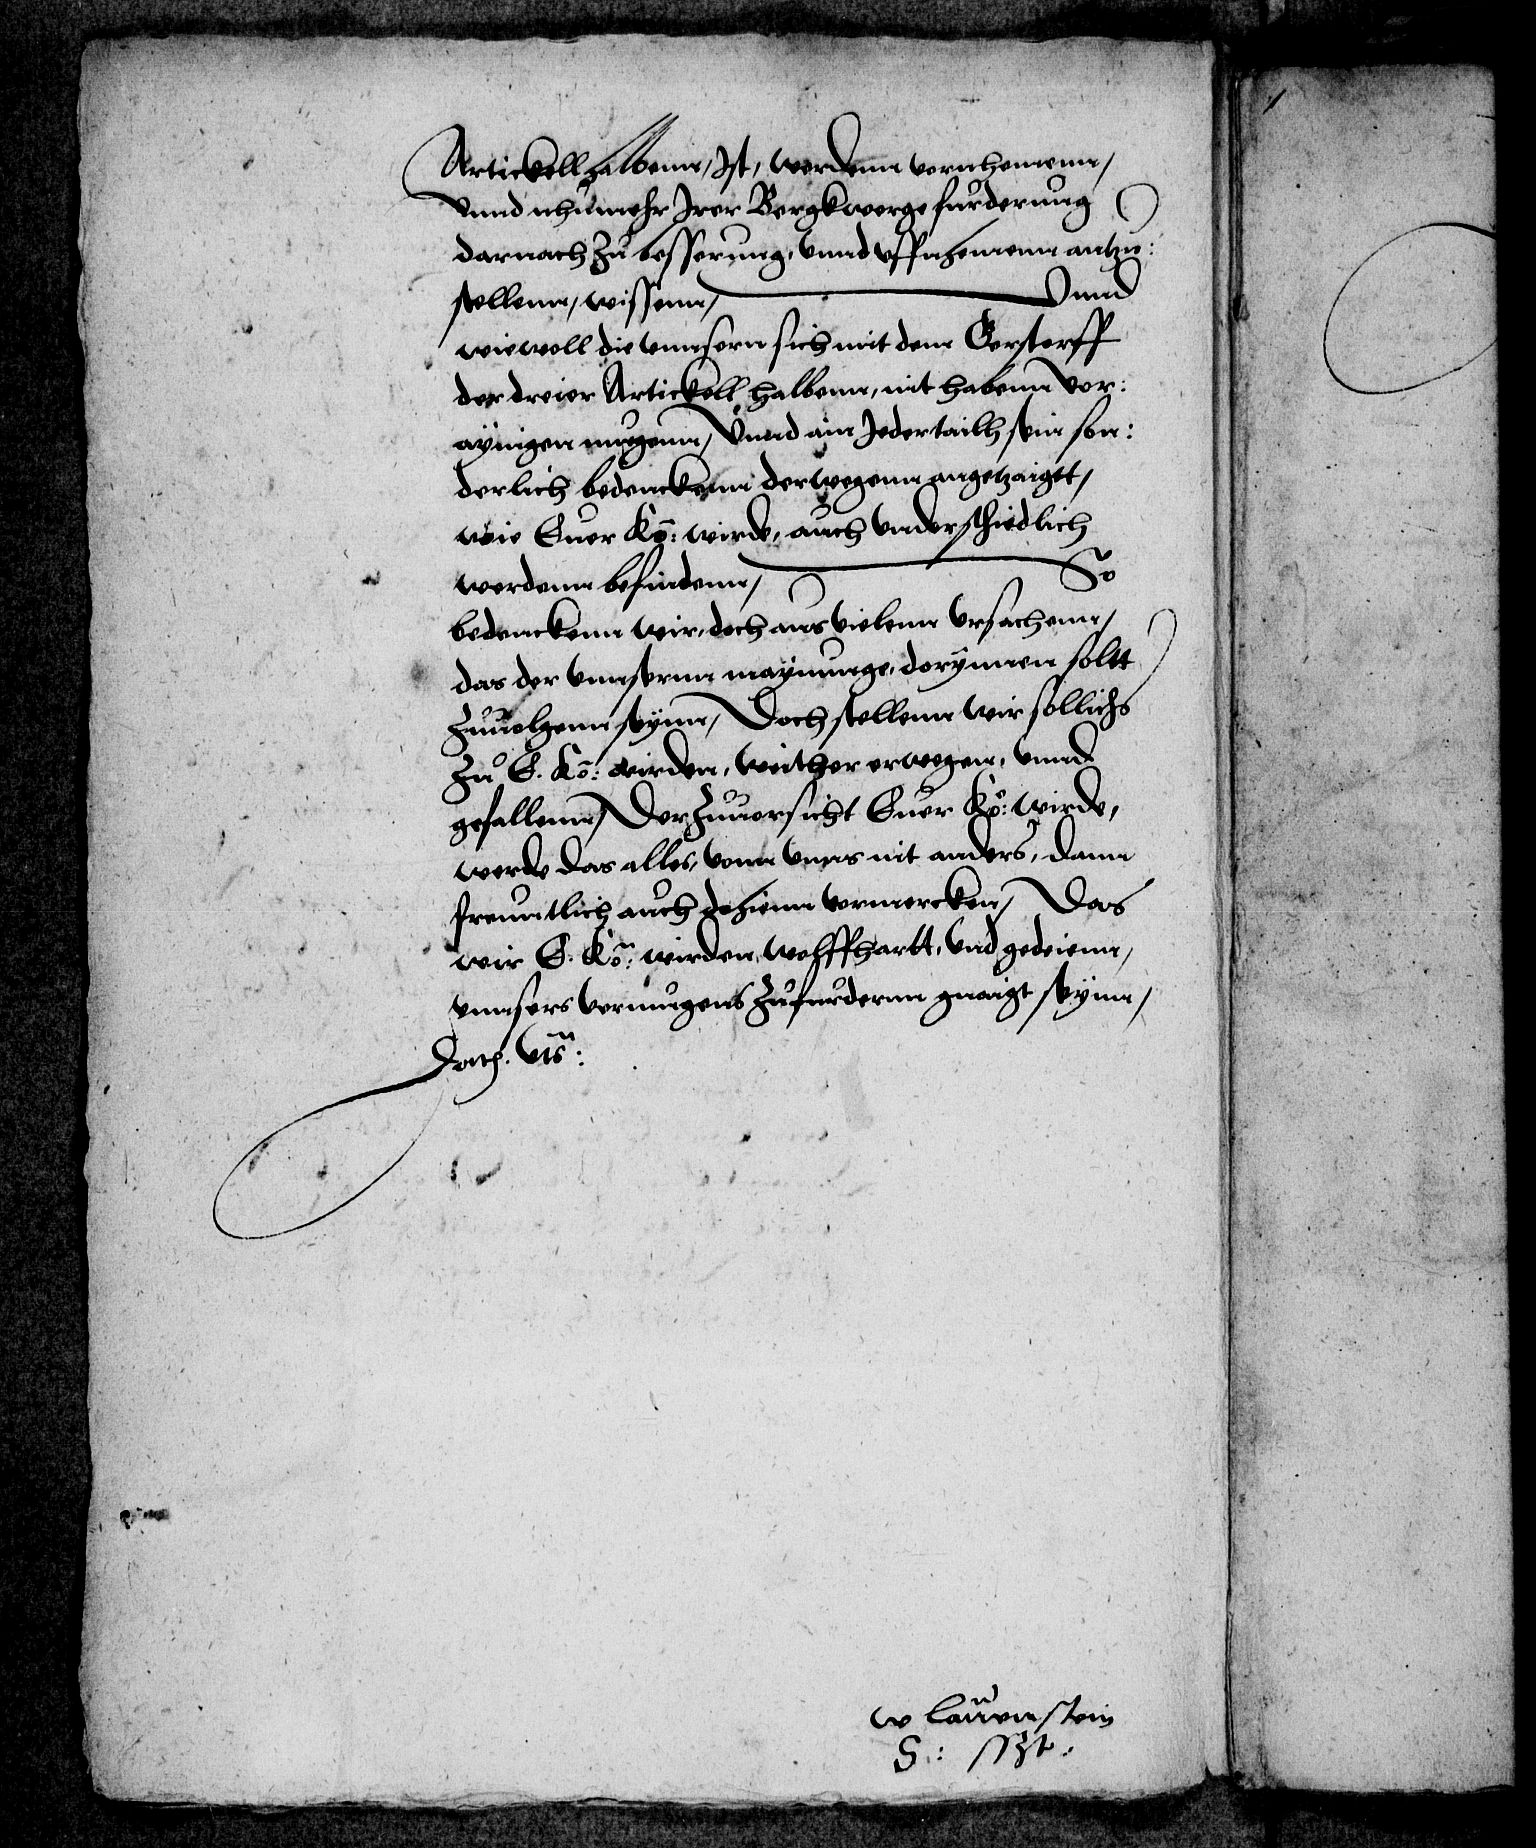 Artickell halbenn, Ist, werdenn vornehmenn,
Vnnd nhumehr Irer Bergkwerge furderung
darnach Zu besserung, vnnd vffnhemenn antzu:
stellenn, wissenn, Vnnd
wiewoll die vnnsern sich mit dem Gerstorff
der dreier Artickell halbenn, nit habenn Vor:
aynigen mugenn, Vnnd ain Jedertailh sein son:
derlich bedenckenn derwegenn angetzaigtt,
wie Euer Kö: wirde, auch vnderschiedlich
werdenn befindenn, So
bedenckenn wir, doch aus vielenn Vrsachenn,
das der vnnsernn maynunge, dorynnen soltt
Zuuolgenn seynn, Doch stellenn wir sollichs
Zu E. Kö: wirden, weither erwegen, vnnd
gefallenn, Der Zuuorsicht Euer Kö: wirde,
werde das alles, vonn vnns nit anders, dann
freuntlich auch dhienn vormercken, Das
wir E. Kö: wirden, wolffhartt, vnd gedeienn,
vnnsers vermugens Zufurdernn gnaigt seynn,
Datt. vts:
w lauenstein
S: sszt.